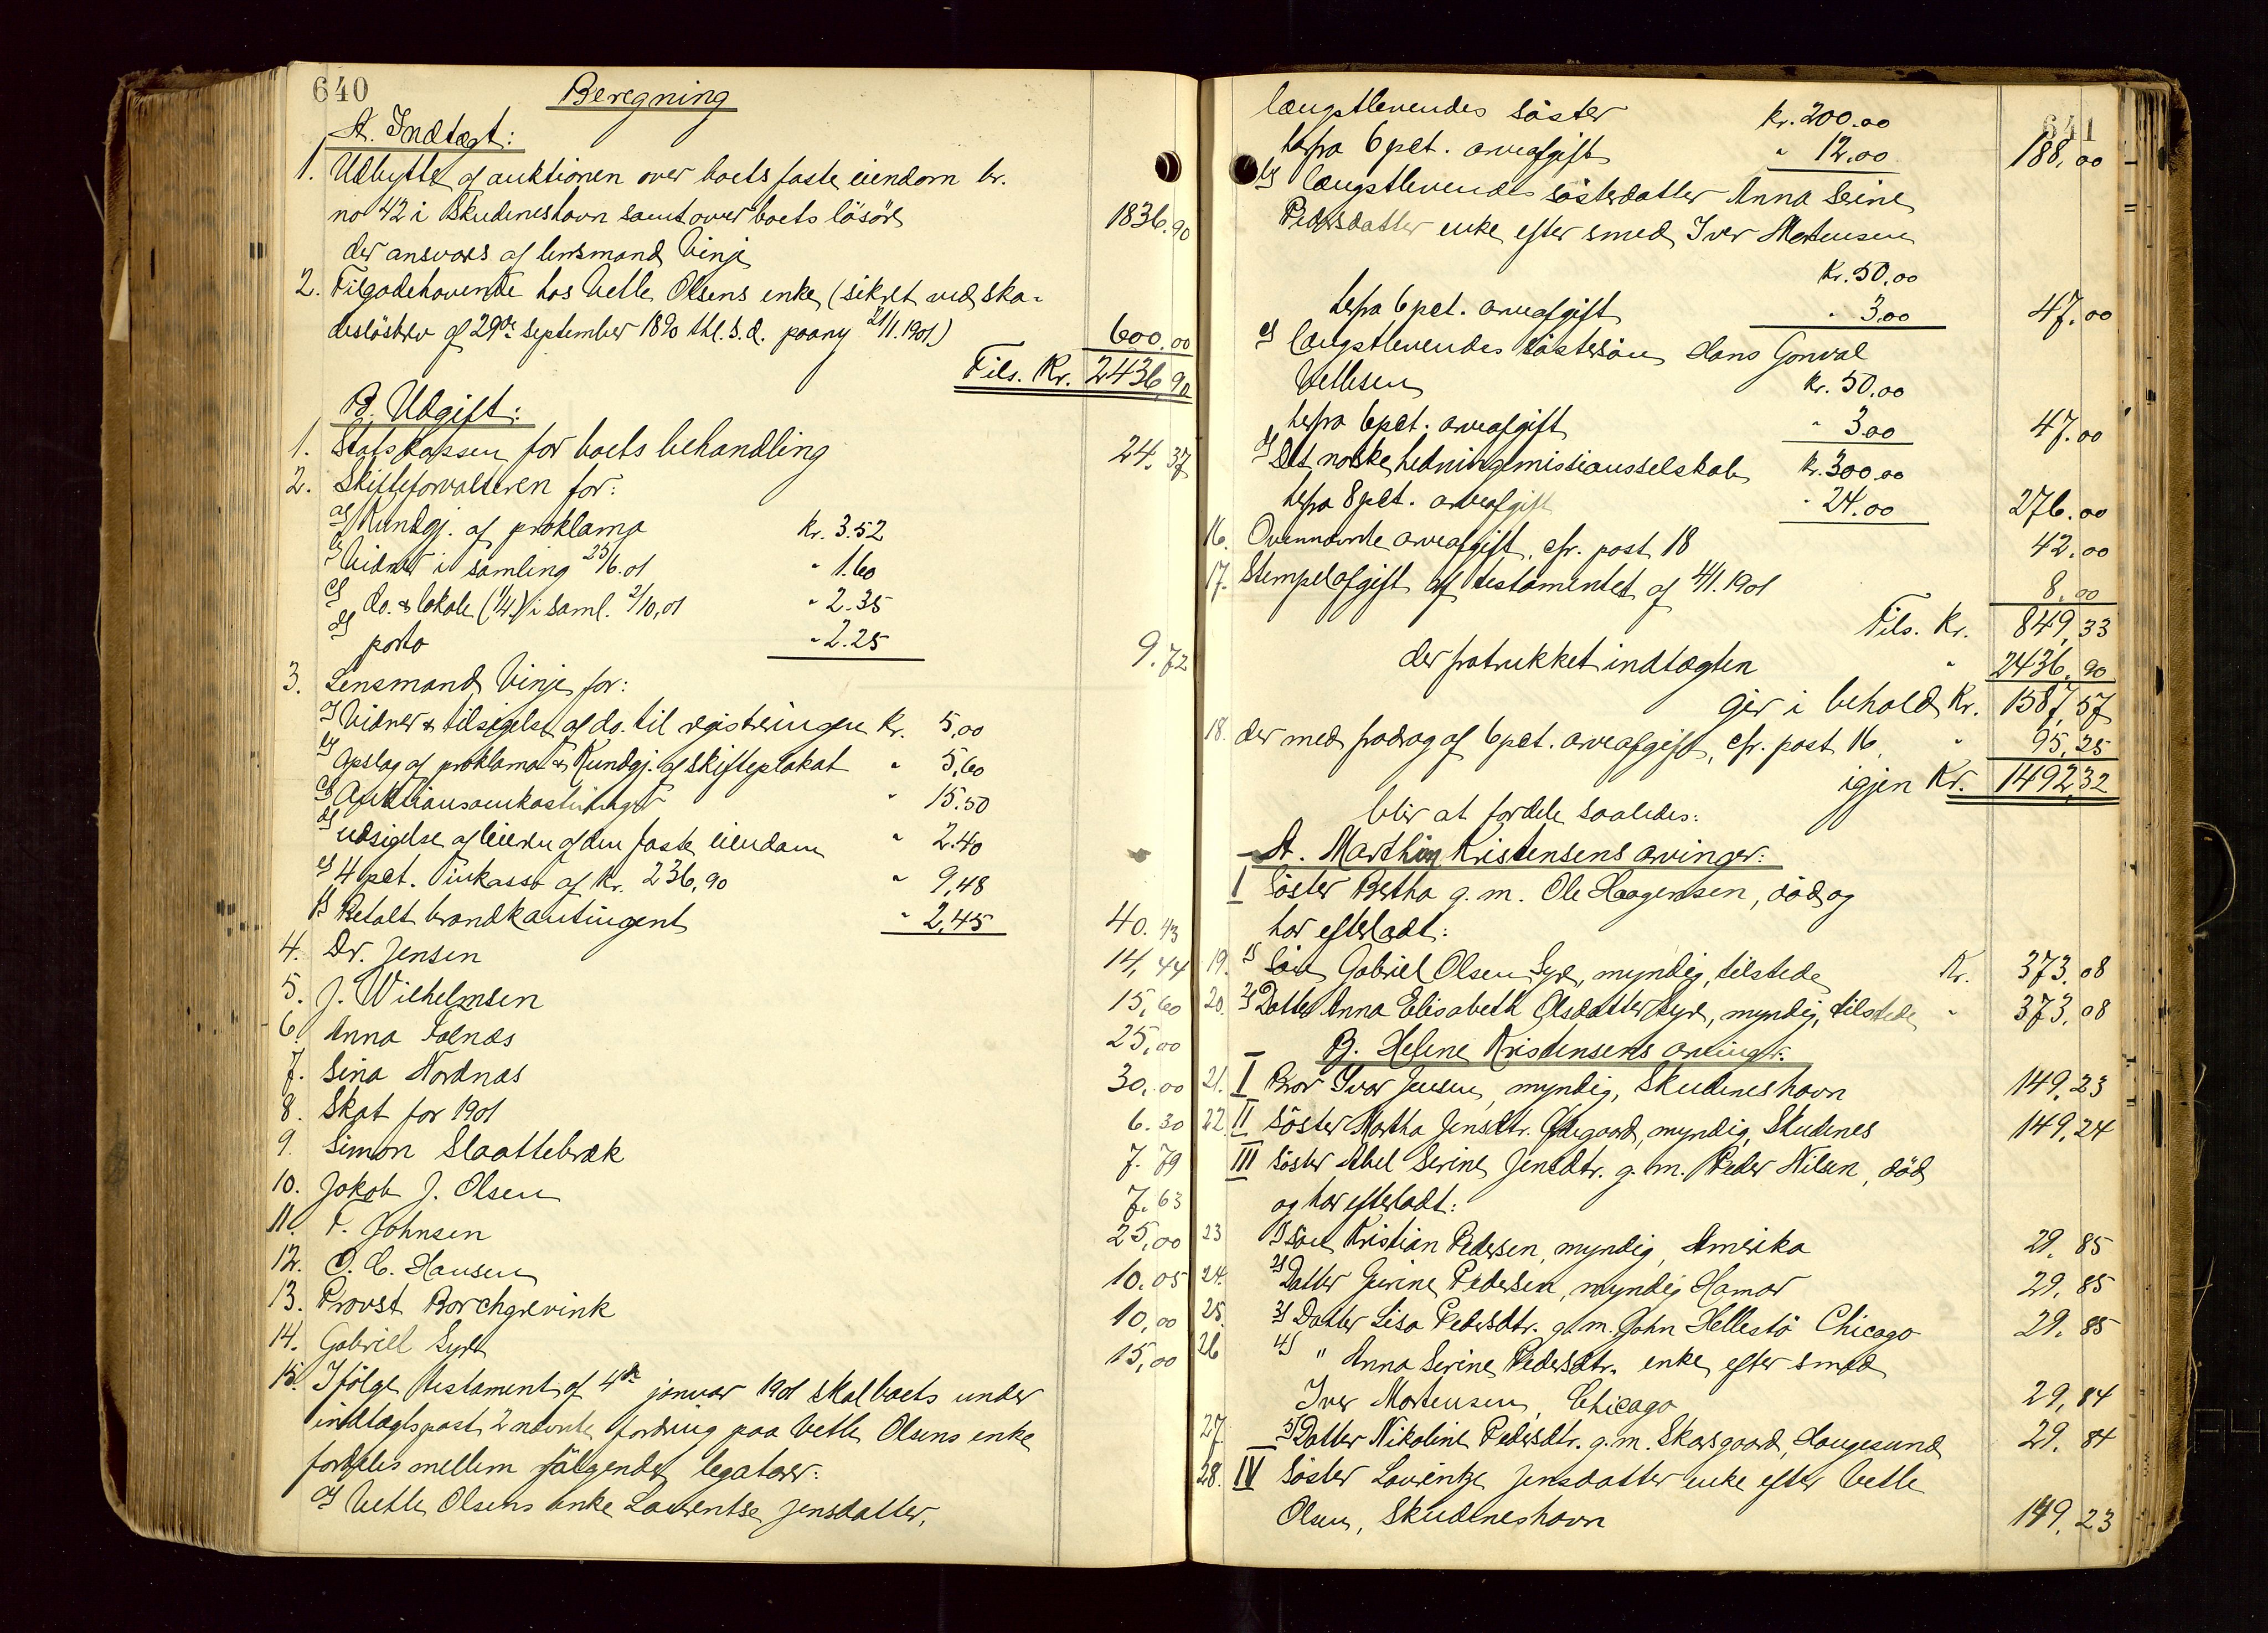 640
Beregning
A. Indtægt:
1. Udbytte af auktionen over boets faste eiendom br.
no 42 i Skudeneshavn samt over boets løsøre
der ansvares af lensmand Vinje 1836.90
2. Tilgodehavende hos Vetle Olsens enke (sikret ved ska-
desløsbrev af 29de september 1890 thl. s. d. paany 21/1.1901.) 600.00
Tils. Kr. 2436,90
B. Udgift:
1. Statskassen for boets behandling 24.37
2. Skifteforvalteren for:
a) Kundgj. af proklama kr. 3.52
b) Vidner i samling 25/6.01 " 1.60
c) do. & lokale (1/4) i saml. 2/10,01 " 2.35
d) porto " 2.25 9.72
3. Lensmand Vinje for:
a) Vidner & tilsigelse af do. til registreringen Kr. 5,00
b) Opslag af proklama & Kundgj. af skifteplakat " 5,60
c) Auktionsomkostninger " 15.50
d) udsigelse af leieren af den faste eiendom " 2.40
e) 4 pct. inkasso af Kr. 236,90 " 9,48
f) Betalt brandkontingent " 2,45 40.43
4. Dr. Jensen 14,44
5. J. Wilhelmsen 15,60
6. Anna Falnes 25,00
7. Sina Nordnæs 30,00
8. Skat for 1901 6.30
9. Simon Slaattebræk 7.79
10. Jakob J. Olsen 7.63
11. T. Johnsen 25,00
12. O. C. Hansen 10.05
13. Provst Borchgrevink 10,00
14. Gabriel Syre 15,00
15. Ifølge testament af 4de januar 1901 skal boets under
indtægtspost 2 nævnte fordring paa Vetle Olsens enke
fordeles mellem følgende legatarer:
a) Vetle Olsens enke Laurentse Jensdatter,
641
længstlevendes søster kr. 200.00
herfra 6 pct. arveafgift " 12.00 188.00
b) længstlevendes søsterdatter Anna Serine
Pedersdatter enke efter smed Iver Mortensen
Kr. 50,00
herfra 6 pct. arveafgift " 3.00 47.00
c) længstlevendes søstersøn Hans Gonval
Vetlesen kr. 50.00
herfra 6 pct. arveafgift " 3.00 47.00
d) Det norske hedningemissionsselskab kr. 300.00
herfra 8 pct. arveafgift " 24.00 276.00
16. Ovennævnte arveafgift, cfr. post 18 42.00
17. Stempelafgift af testamentet af 4/1.1901 8.00
Tils. Kr. 849,33
der fratrukket indtægten " 2436.90
gir i behold Kr. 1587,57
18. der med fradrag af 6 pct. arveafgift, cfr. post 16, " 95,25
igjen Kr. 1492,32
blir at fordele saaledes:
A. Marthin Kristensens arvinger:
I Søster Bertha g. m. Ole Haagensen, død og
har efterladt:
19. 1) Søn Gabriel Olsen Syre, myndig, tilstede Kr. 373.08
20. 2) Datter Anna Elisabeth Olsdatter Syre, myndig, tilstede " 373.08
B. Helene Kristensens arvinger:
21. I Bror Ivar Jensen, myndig, Skudeneshavn 149.23
22. II Søster Martha Jensdtr. Ødegaard, myndig, Skudenes 149,24
III Søster Abel Serine Jensdtr. g. m. Peder Nilsen, død
og har efterladt:
23 1) Søn Kristian Pedersen, myndig, Amerika 29.85
24. 2) Datter Jurine Pedersen, myndig Hamar 29.85
25. 3) Datter Lisa Pedersdtr. g. m. John Hellestø Chicago 29.85
26 4) " Anna Serine Pedersdtr. enke efter smed
Iver Mortensen, Chicago 29,84
27. 5) Datter Nikoline Pedersdtr. g. m. Skarsgaard, Haugesund 29.84
28. IV Søster Laurentze Jensdatter enke efter Vetle
Olsen, Skudeneshavn 149.23